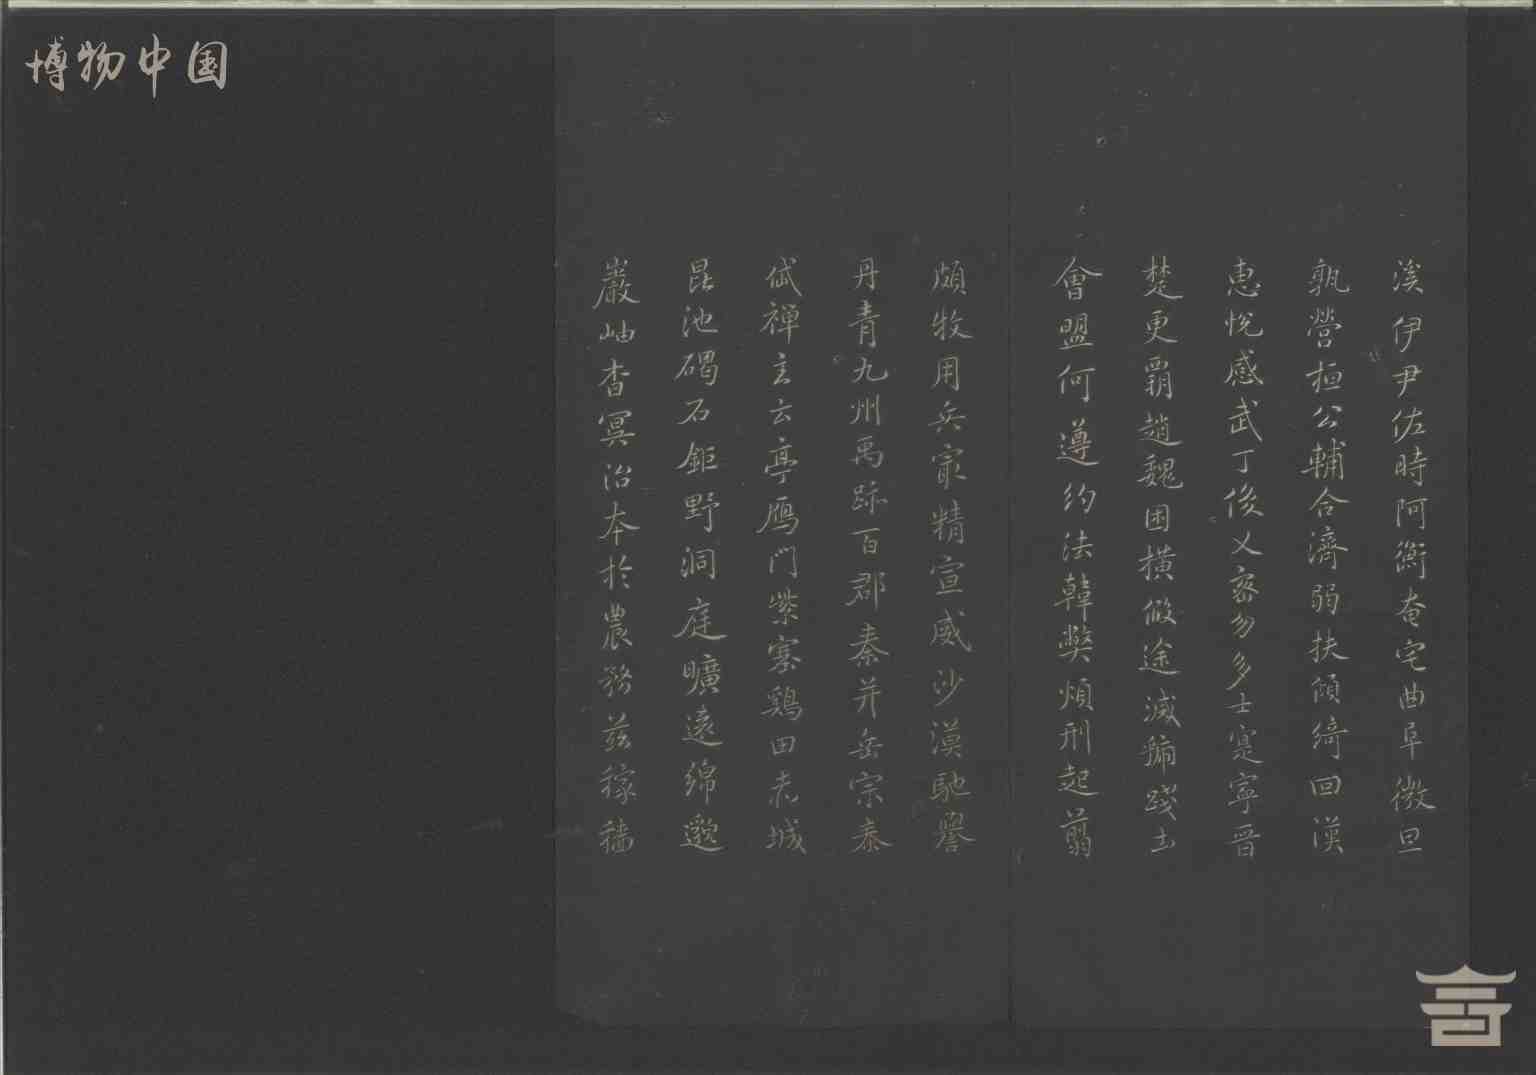 博物中国
溪伊尹佐時阿衡奄宅曲阜微旦
孰營桓公輔合濟弱扶傾綺回漢
惠悅感武丁俊乂密勿多士寔寧晉
楚更霸趙魏困橫假途滅虢踐土
會盟何遵約法韓弊煩刑起翦
頗牧用兵最精宣威沙漠馳譽
丹青九州禹跡百郡秦并岳宗泰
岱禪主云亭鴈門紫塞鷄田赤城
昆池碣石鉅野洞庭曠遠綿邈
巖岫杳冥治本於農務茲稼穡